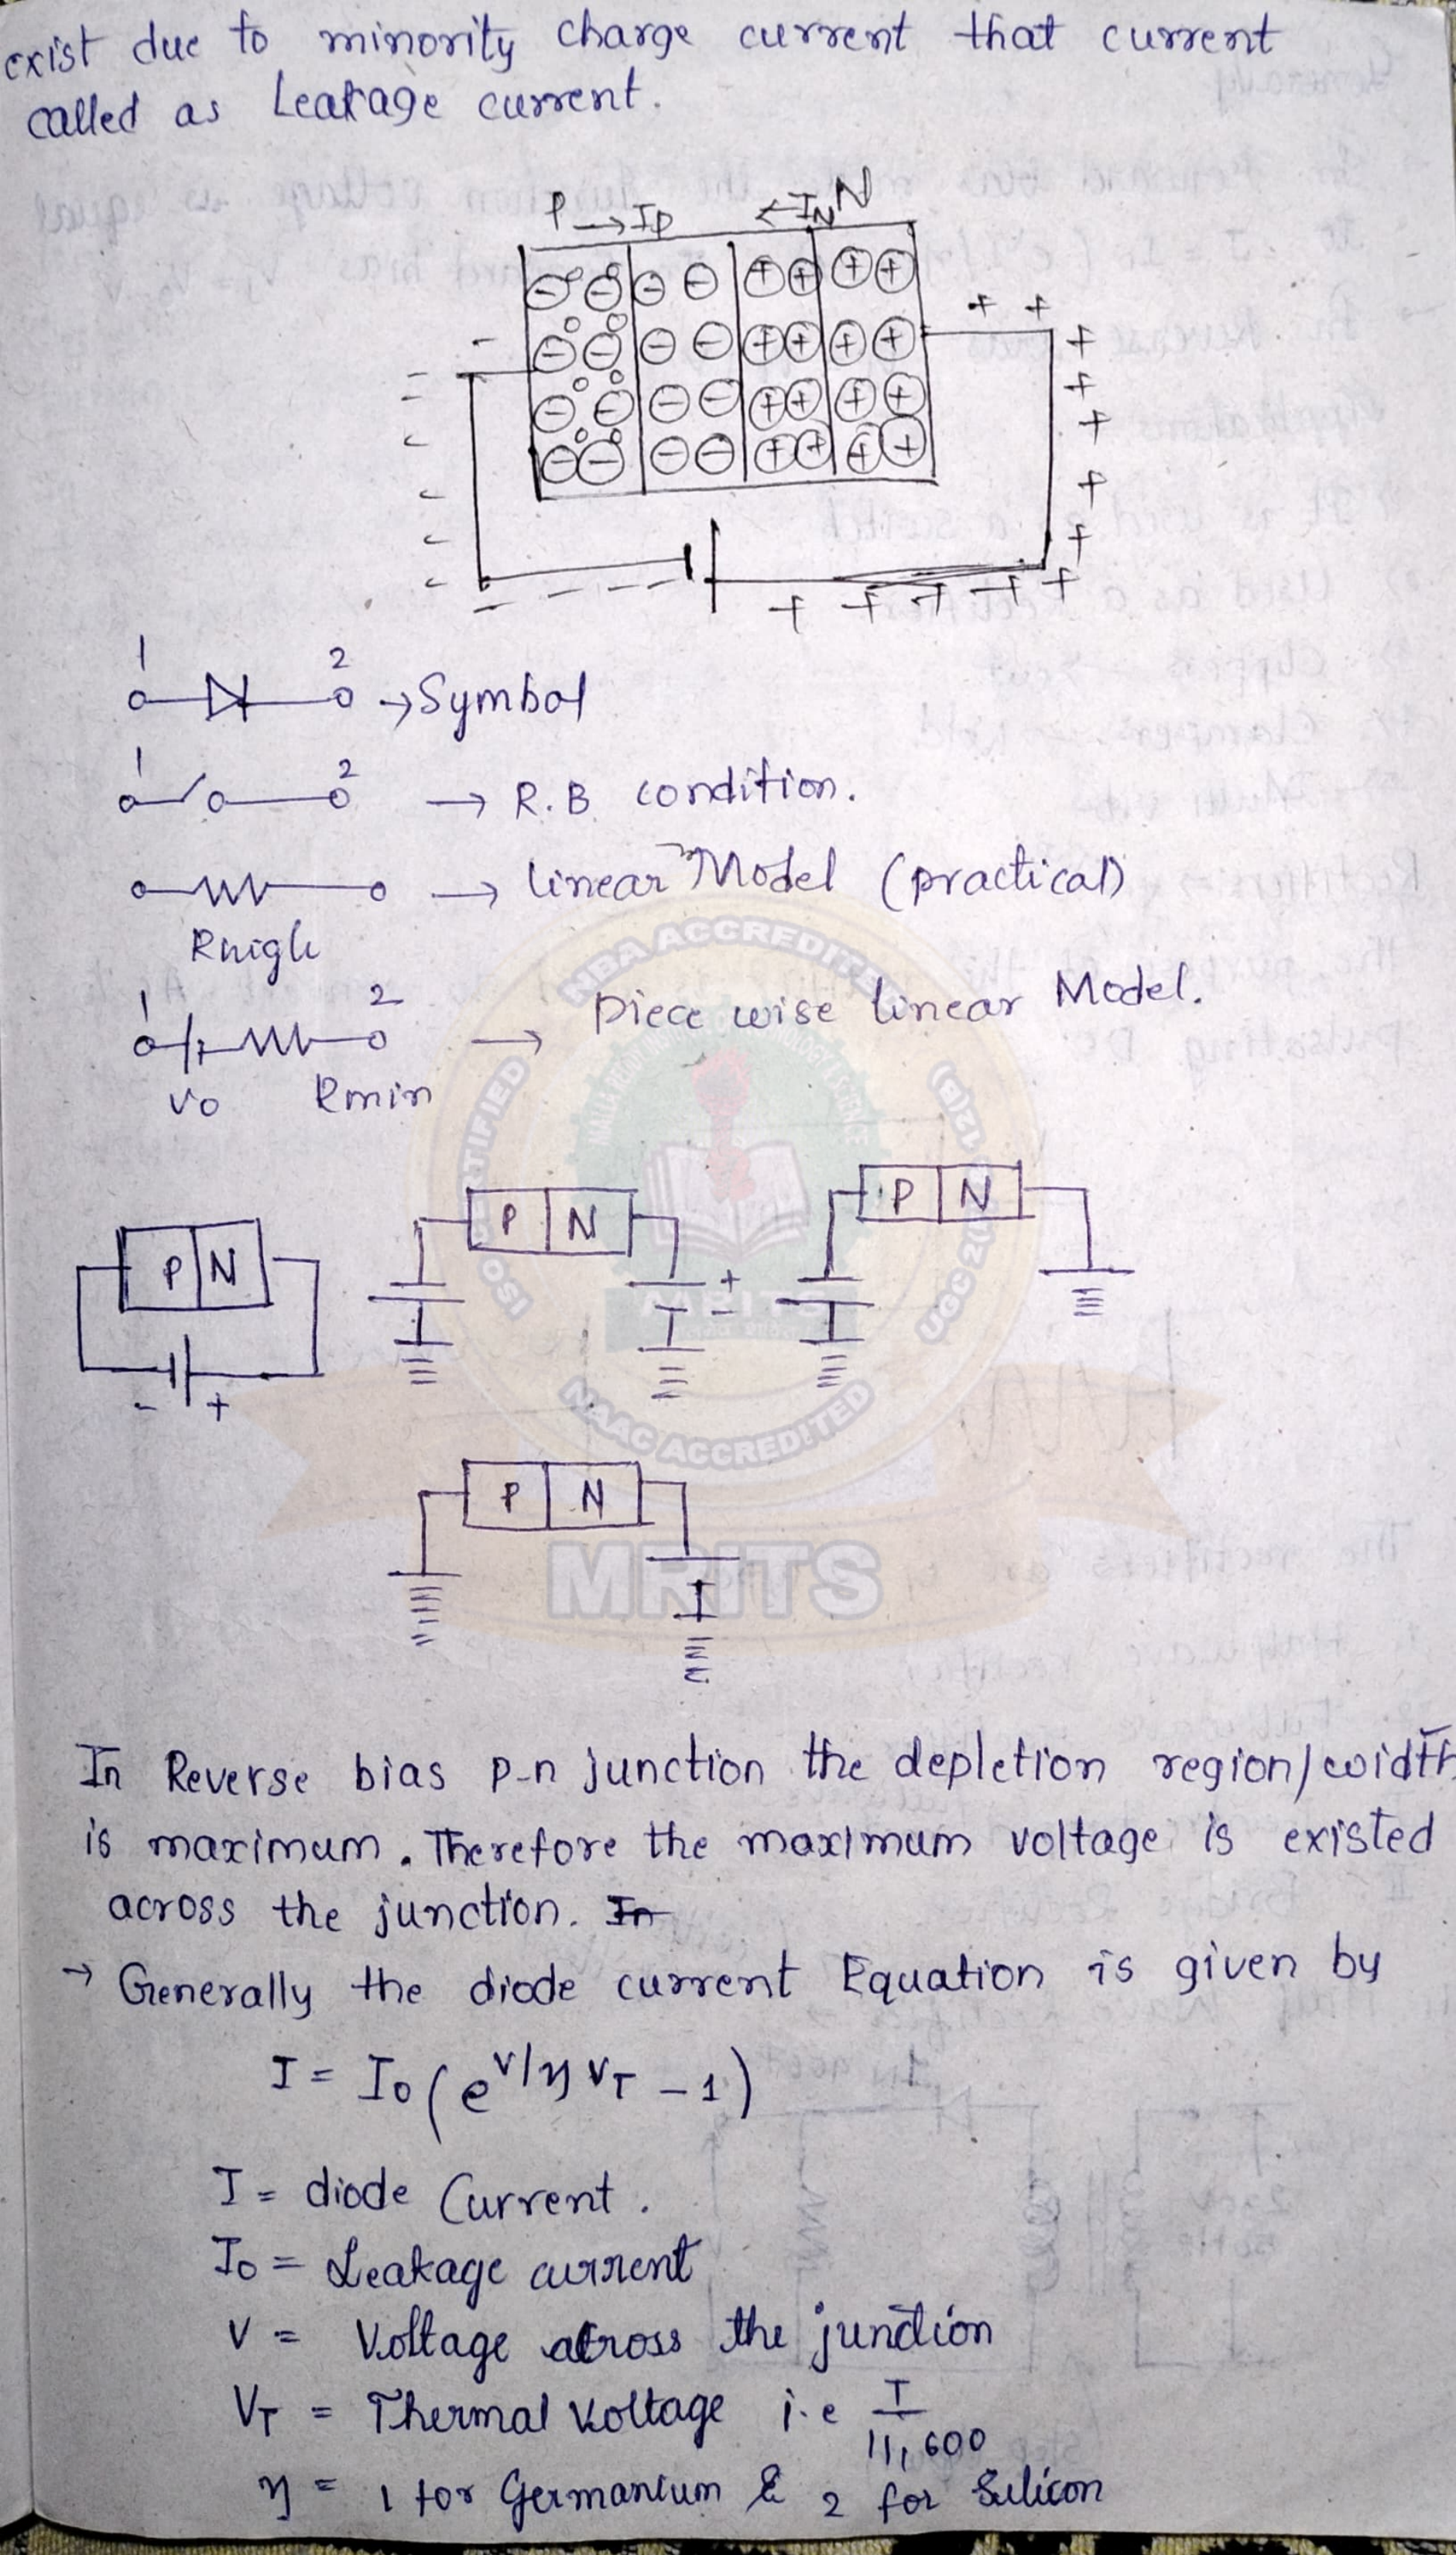 exist due to minority charge current that current
called as Leakage current.
P →IP ←IN N
1 2 →Symbol
1 2 → R.B condition.
→ linear Model (practical)
Rhigh
1 2 → Piece wise linear Model.
Vo Rmin
P N
P N
P N
- +
+
-
P N
NBA ACCREDITED
NAAC ACCREDITED
MRITS
In Reverse bias p-n junction the depletion region/width
is maximum. Therefore the maximum voltage is existed
across the junction. In
→ Generally the diode current Equation is given by
I = Io (e^V/η VT - 1)
I = diode Current.
Io = Leakage current
V = Voltage across the junction
VT = Thermal Voltage i.e T/11,600
η = 1 for Germanium & 2 for Silicon